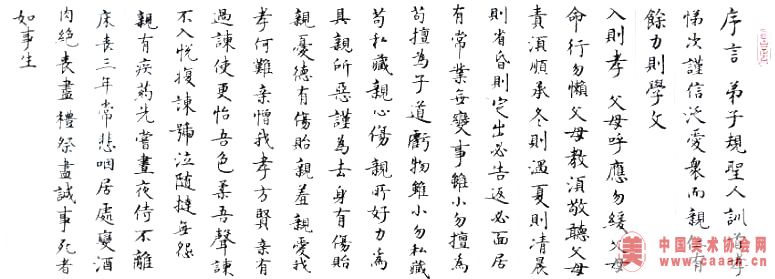 序言 弟子規聖人訓首孝
悌次謹信汎愛眾而親仁有
餘力則學文
入則孝 父母呼應勿緩父母
命行勿懶父母教須敬聽父母
責須順承冬則溫夏則凊晨
則省昏則定出必告返必面居
有常業無變事雖小勿擅為
苟擅為子道虧物雖小勿私藏
苟私藏親心傷親所好力為
具親所惡謹為去身有傷貽
親憂德有傷貽親羞親愛我
孝何難親憎我孝方賢親有
過諫使更怡吾色柔吾聲諫
不入悅復諫號泣隨撻無怨
親有疾藥先嘗晝夜侍不離
床喪三年常悲咽居處變酒
肉絕喪盡禮祭盡誠事死者
如事生
美 中国美术协会网